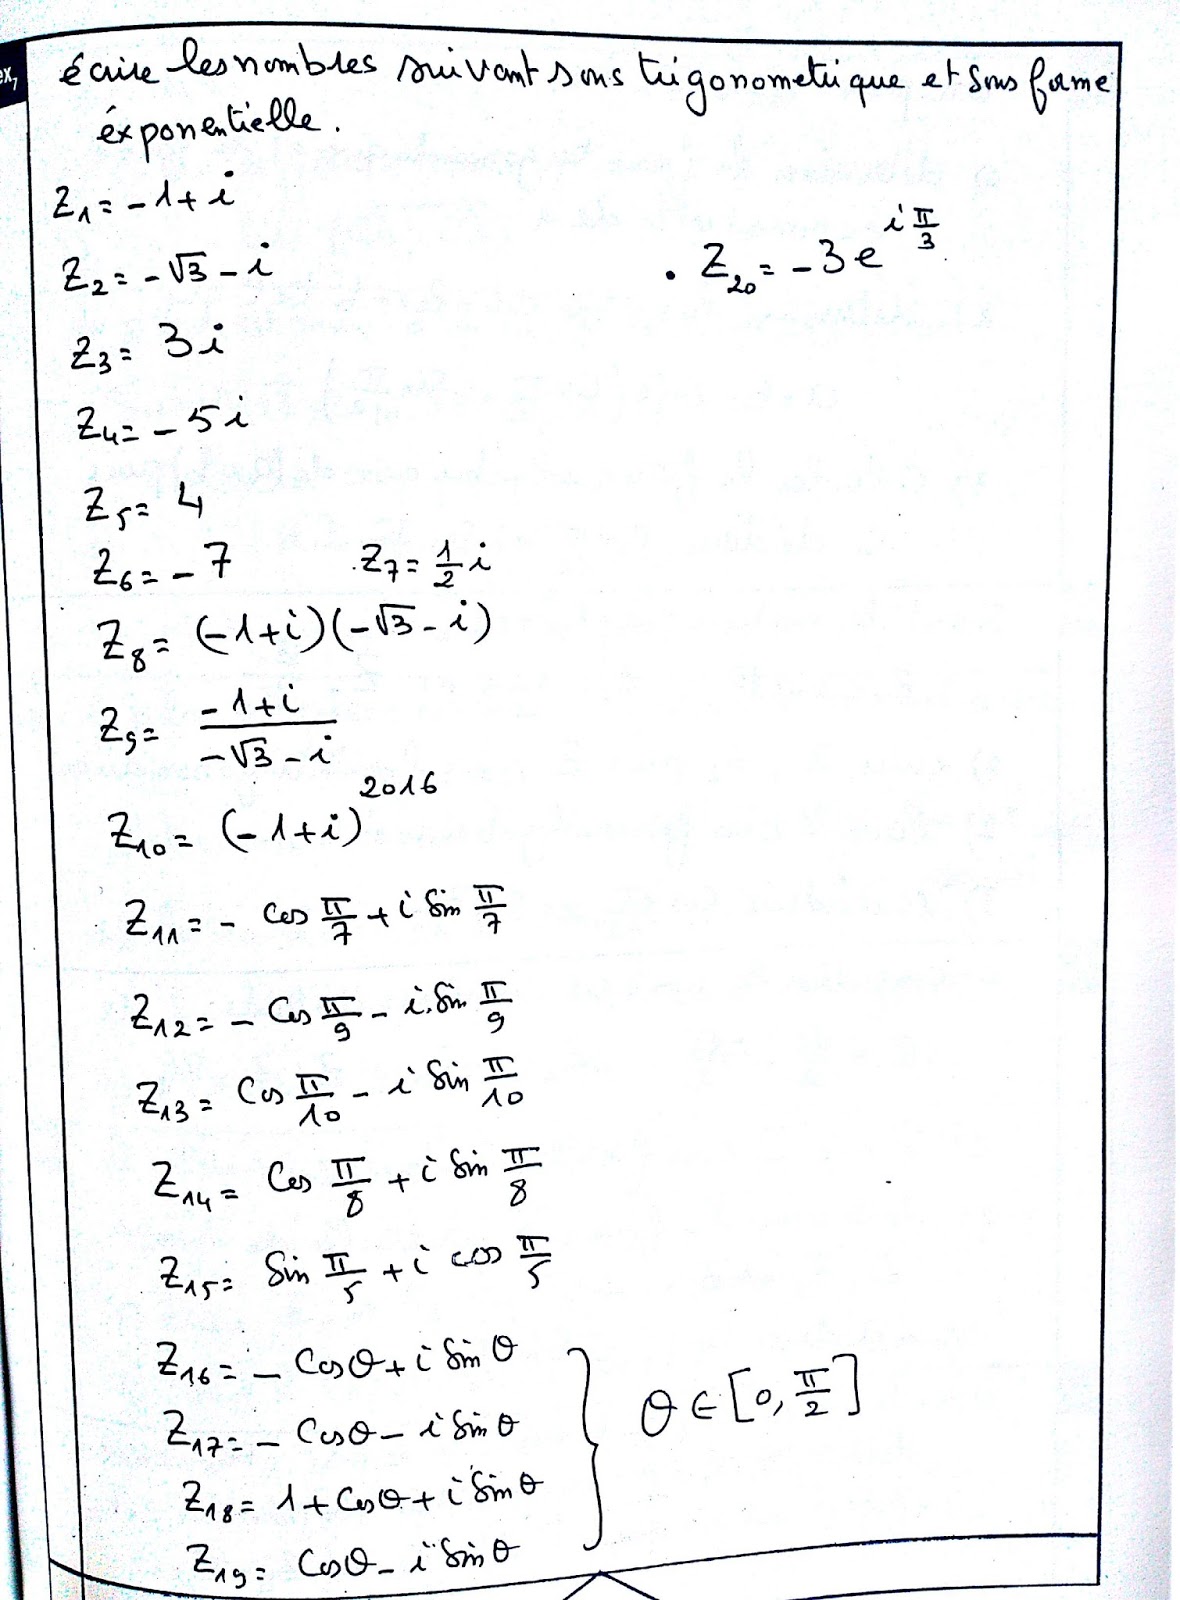 ex7
écrire les nombres suivant sous trigonometrique et sous forme
éxponentielle.
Z₁ = -1+i
Z₂ = -√3 - i
. Z₂₀ = -3e^{i π/3}
Z₃ = 3i
Z₄ = -5i
Z₅ = 4
Z₆ = -7 Z₇ = 1/2 i
Z₈ = (-1+i)(-√3 - i)
Z₉ = (-1+i)/(-√3 - i)
Z₁₀ = (-1+i)^2016
Z₁₁ = - cos π/7 + i sin π/7
Z₁₂ = - Cos π/9 - i.sin π/9
Z₁₃ = Cos π/10 - i sin π/10
Z₁₄ = Cos π/8 + i sin π/8
Z₁₅ = sin π/5 + i cos π/5
Z₁₆ = - Cosθ + i sinθ
Z₁₇ = - Cosθ - i sinθ
θ ∈ [0, π/2]
Z₁₈ = 1 + Cosθ + i sinθ
Z₁₉ = Cosθ - i sinθ